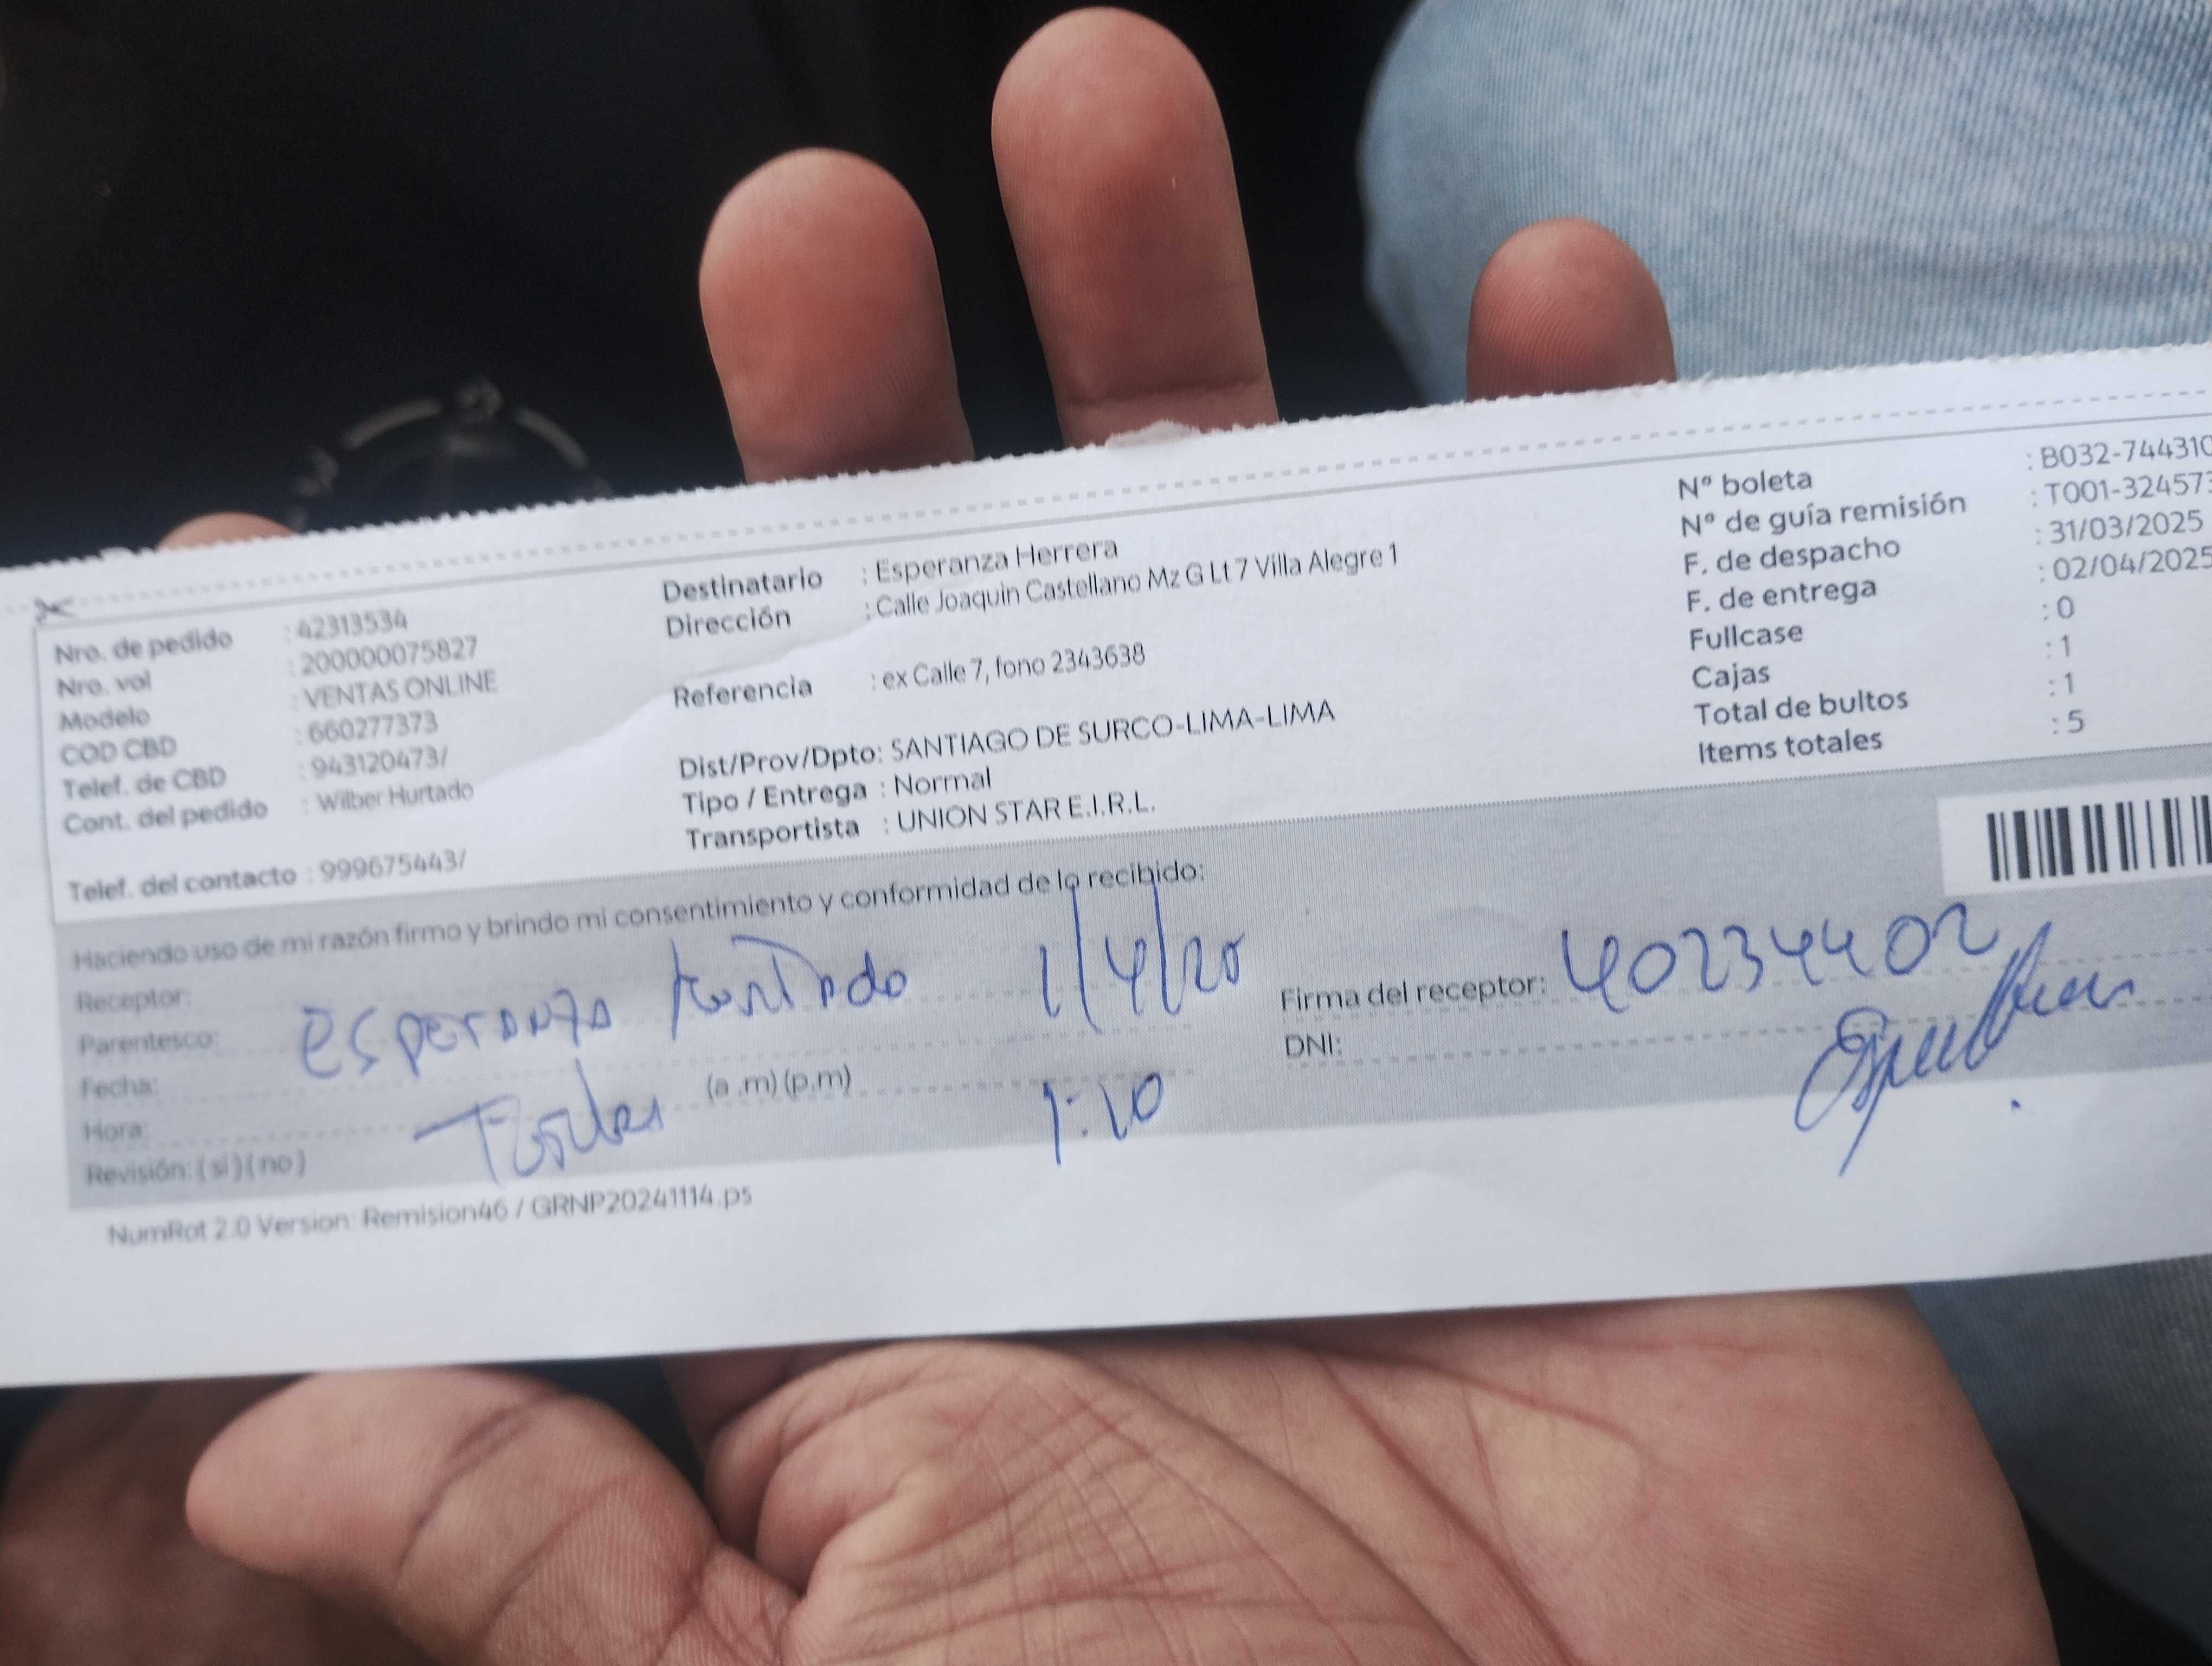 Nro. de pedido : 42313534
Nro. vol : 200000075827
Modelo : VENTAS ONLINE
COD CBD : 660277373
Telef. de CBD : 943120473/
Cont. del pedido : Wilber Hurtado
Telef. del contacto : 999675443/
Destinatario : Esperanza Herrera
Dirección : Calle Joaquin Castellano Mz G Lt 7 Villa Alegre 1
Referencia : ex Calle 7, fono 2343638
Dist/Prov/Dpto: SANTIAGO DE SURCO-LIMA-LIMA
Tipo / Entrega : Normal
Transportista : UNION STAR E.I.R.L.
N° boleta : B032-744310
N° de guía remisión : T001-324573
F. de despacho : 31/03/2025
F. de entrega : 02/04/2025
Fullcase : 0
Cajas : 1
Total de bultos : 1
Items totales : 5
Haciendo uso de mi razón firmo y brindo mi consentimiento y conformidad de lo recibido:
Receptor:
Parentesco: Esperanza 1/4/20
Fecha:
Hora: (a .m) (p.m) 1:20
Revisión: ( si ) ( no )
Firma del receptor: 40234402
DNI:
NumRot 2.0 Version: Remision46 / GRNP20241114.ps